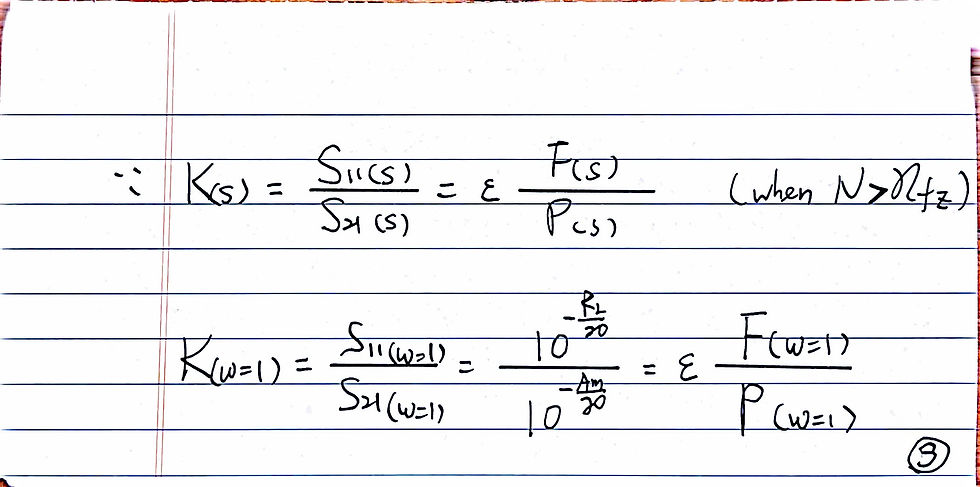 ∵ K(s) = S11(s) / S21(s) = ε F(s) / P(s) (when N > nfz)
K(w=1) = S11(w=1) / S21(w=1) = 10^(-RL/20) / 10^(-Am/20) = ε F(w=1) / P(w=1)
③